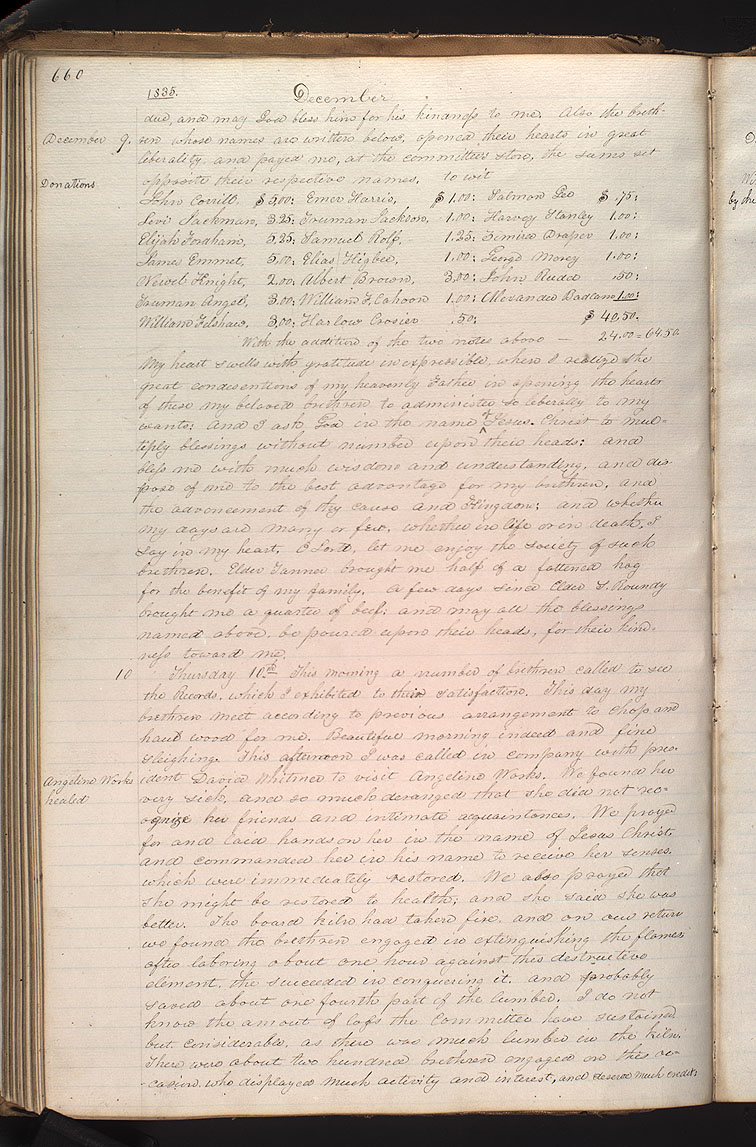 660
1835. December
due, and may God bless him for his kindness to me. Also the breth-
December 9. ren whose names are written below, opened their hearts in great
liberality and payed me, at the committee's store, the sums set
Donations opposite their respective names, to wit
John Corrill, $5,00; Emer Harris, $1.00: Salmon Gee $.75;
Levi Jackman, 3.25; Truman Jackson, 1.00; Harvey Stanley 1.00;
Elijah Fordham, 5.25; Samuel Rolfe, 1.25; Zemira Draper 1.00;
James Emmet, 5,00; Elias Higbee, 1.00: George Morey 1.00;
Newel Knight, 2.00; Albert Brown, 3,00; John Rudd .50;
Truman Angel, 3.00; William F. Cahoon 1.00; Alexander Badlam 1.00;
William Felshaw, 3,00; Harlow Crosier .50; $40,50.
With the addition of the two notes above — 24.00 = 64.50
My heart swells with gratitude inexpressible, when I realize the
great condesentions of my heavenly Father in opening the hearts
of these my beloved brethren to administer so liberally to my
wants; And I ask God in the name of Jesus Christ to mul-
tiply blessings without number upon their heads; and
bless me with much wisdom and understanding, and dis-
pose of me to the best advantage for my brethren, and
the advancement of thy cause and Kingdom; and whether
my days are many or few, whether in life or in death, I
say in my heart, O Lord, let me enjoy the society of such
brethren. Elder Tanner brought me half of a fattened hog
for the benefit of my family. A few days since Elder S. Roundy
brought me a quarter of beef; and may all the blessings
named above, be poured upon their heads, for their kind-
ness toward me.
10 Thursday 10th This morning a number of brethren called to see
the Records, which I exhibited to their satisfaction. This day my
brethren meet according to previous arrangement to chop and
haul wood for me. Beautiful morning indeed and fine
sleighing. This afternoon I was called in company with pres-
Angeline Works ident David Whitmer to visit Angeline Works. We found her
healed very sick, and so much deranged that she did not rec-
ognize her friends and intimate acquaintances. We prayed
for and laid hands on her in the name of Jesus Christ,
and commanded her in his name to receive her senses,
which were immediately restored. We also prayed that
she might be restored to health; and she said she was
better. The board kiln had taken fire, and on our return
we found the brethren engaged in extinguishing the flames;
after laboring about one hour against this destructive
element, the succeeded in conquering it, and probably
saved about one fourth part of the lumber. I do not
know the amount of loss the Committee have sustained
but considerable, as there was much lumber in the kiln.
There were about two hundred brethren engaged on this oc-
-casion, who displayed much activity and interest, and deserve much credit.